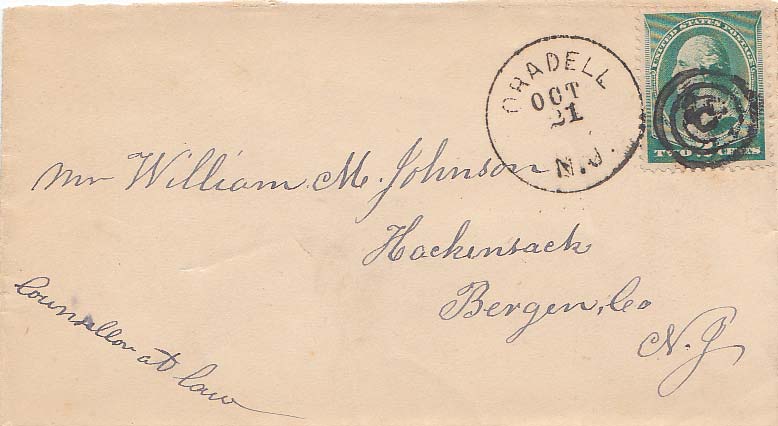 UNITED STATES POSTAGE
TWO CENTS
ORADELL
OCT
21
N.J.
Mr William M. Johnson
Hackensack
Bergen, Co
N.J
Counsellor at law